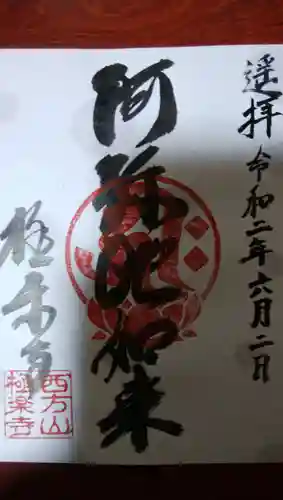 遥拝 令和二年六月二日
阿弥陀如来
極楽寺
西方山
極楽寺